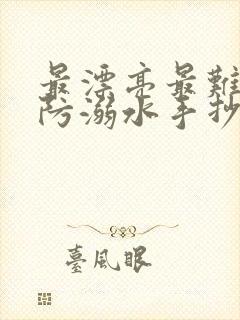 最漂亮最難
防溺水手抄
臺風眼